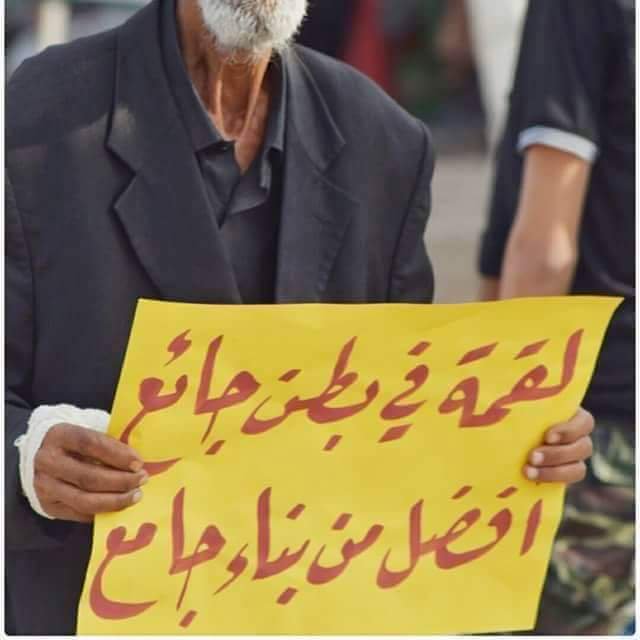 لقمة في بطن جائع
افضل من بناء جامع